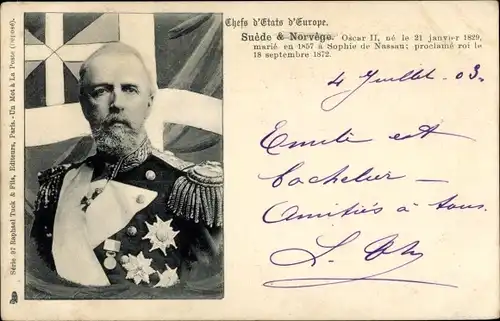 Chefs d'Etats d'Europe.
Suède & Norvège. Oscar II, né le 21 janvier 1829,
marié en 1857 à Sophie de Nassau; proclamé roi le
18 septembre 1872.
4 Juillet. 03.
Emile est
bachelier —
Amitiés à tous.
Série 97 Raphael Tuck & Fils, Editeurs, Paris.-Un Mot à La Poste (Déposé).